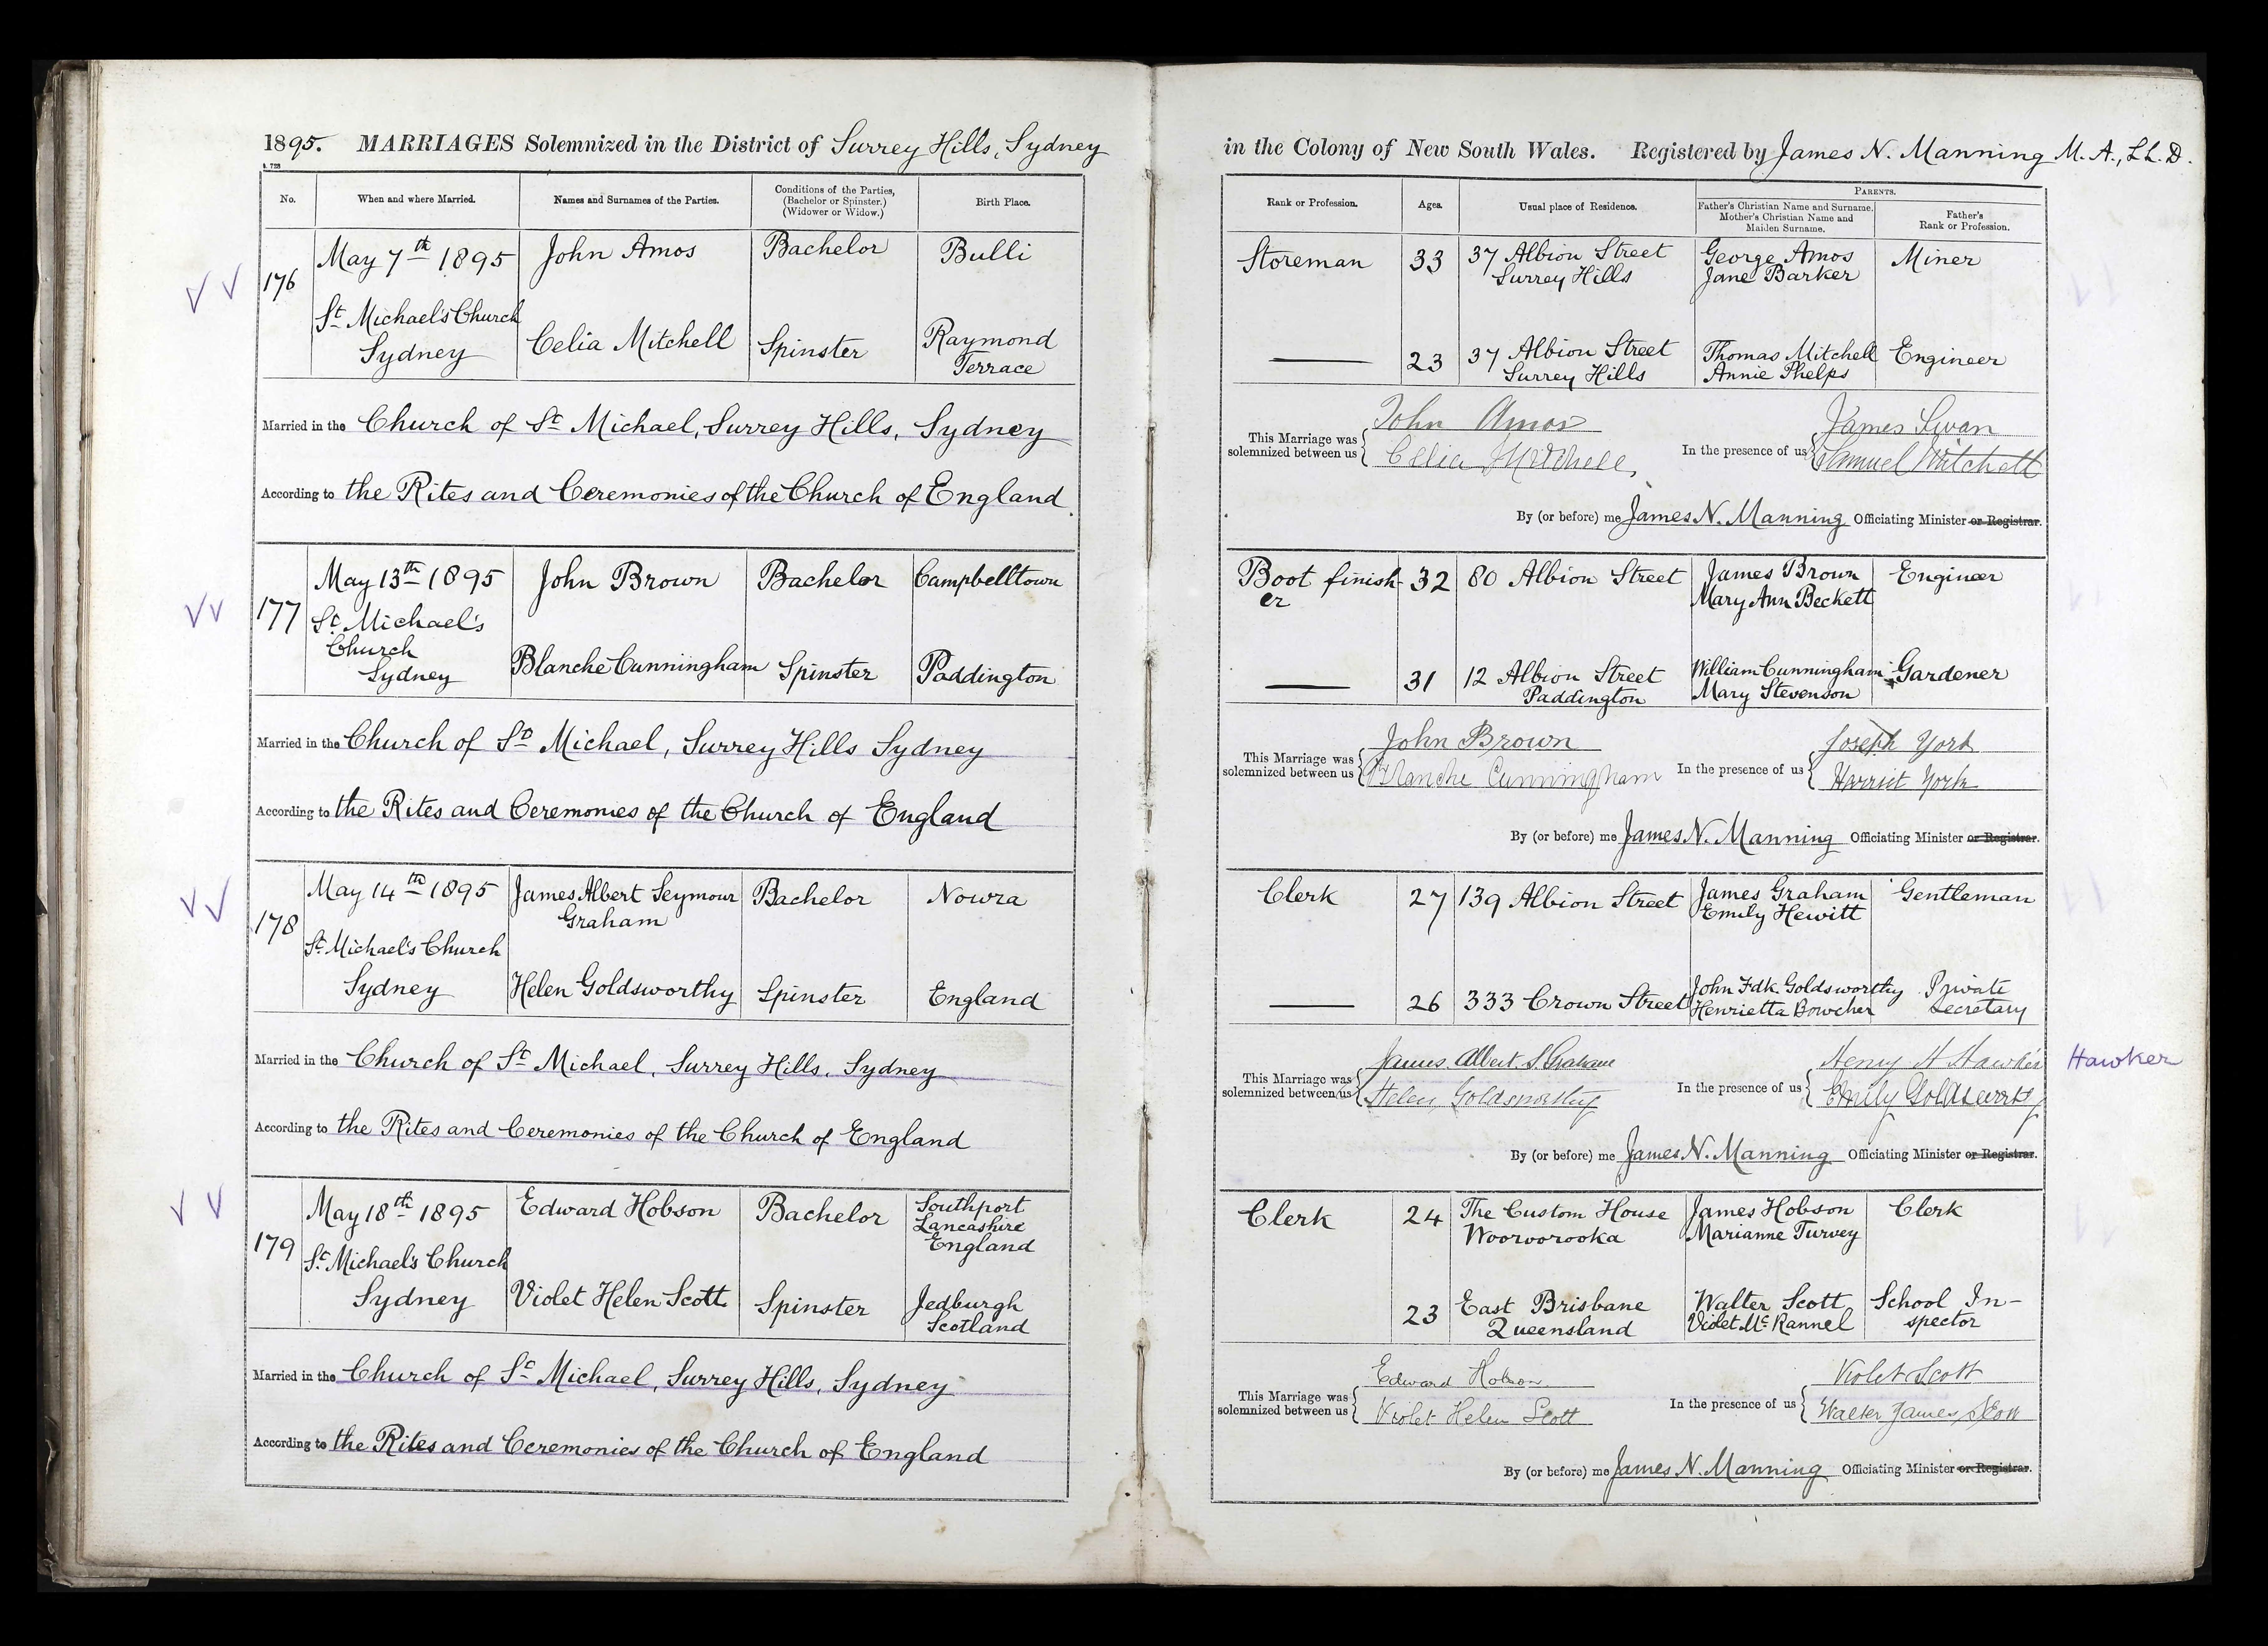 1895. MARRIAGES Solemnized in the District of Surrey Hills, Sydney
No. When and where Married. Names and Surnames of the Parties. Conditions of the Parties, (Bachelor or Spinster.) (Widower or Widow.) Birth Place.
176 May 7th 1895 John Amos Bachelor Bulli
St Michael's Church
Sydney Celia Mitchell Spinster Raymond
Terrace
Married in the Church of St Michael, Surrey Hills, Sydney
According to the Rites and Ceremonies of the Church of England
177 May 13th 1895 John Brown Bachelor Campbelltown
St Michael's
Church
Sydney Blanche Cunningham Spinster Paddington
Married in the Church of St Michael, Surrey Hills Sydney
According to the Rites and Ceremonies of the Church of England
178 May 14th 1895 James Albert Seymour Bachelor Nowra
Graham
St Michael's Church
Sydney Helen Goldsworthy Spinster England
Married in the Church of St Michael, Surrey Hills, Sydney
According to the Rites and Ceremonies of the Church of England
179 May 18th 1895 Edward Hobson Bachelor Southport
Lancashire
England
St Michael's Church
Sydney Violet Helen Scott Spinster Jedburgh
Scotland
Married in the Church of St Michael, Surrey Hills, Sydney
According to the Rites and Ceremonies of the Church of England
in the Colony of New South Wales. Registered by James N. Manning M.A., LL.D.
PARENTS.
Rank or Profession. Ages. Usual place of Residence. Father's Christian Name and Surname. Mother's Christian Name and Maiden Surname. Father's Rank or Profession.
Storeman 33 37 Albion Street George Amos Miner
Surrey Hills Jane Barker
23 37 Albion Street Thomas Mitchell Engineer
Surrey Hills Annie Phelps
This Marriage was John Amos James Swan
solemnized between us Celia Mitchell In the presence of us Samuel Mitchell
By (or before) me James N. Manning Officiating Minister or Registrar.
Boot finish- 32 80 Albion Street James Brown Engineer
er Mary Ann Beckett
31 12 Albion Street William Cunningham Gardener
Paddington Mary Stevenson
This Marriage was John Brown Joseph York
solemnized between us Blanche Cunningham In the presence of us Harriet York
By (or before) me James N. Manning Officiating Minister or Registrar.
Clerk 27 139 Albion Street James Graham Gentleman
Emily Hewitt
26 333 Crown Street John Fdk. Goldsworthy Private
Henrietta Bowcher Secretary
This Marriage was James Albert S. Graham Henry H Hawker Hawker
solemnized between us Helen Goldsworthy In the presence of us Emily Goldsworthy
By (or before) me James N. Manning Officiating Minister or Registrar.
Clerk 24 The Custom House James Hobson Clerk
Wooroorooka Marianne Turvey
23 East Brisbane Walter Scott School In-
Queensland Violet Mc Rannel spector
This Marriage was Edward Hobson Violet Scott
solemnized between us Violet Helen Scott In the presence of us Walter James Scott
By (or before) me James N. Manning Officiating Minister or Registrar.